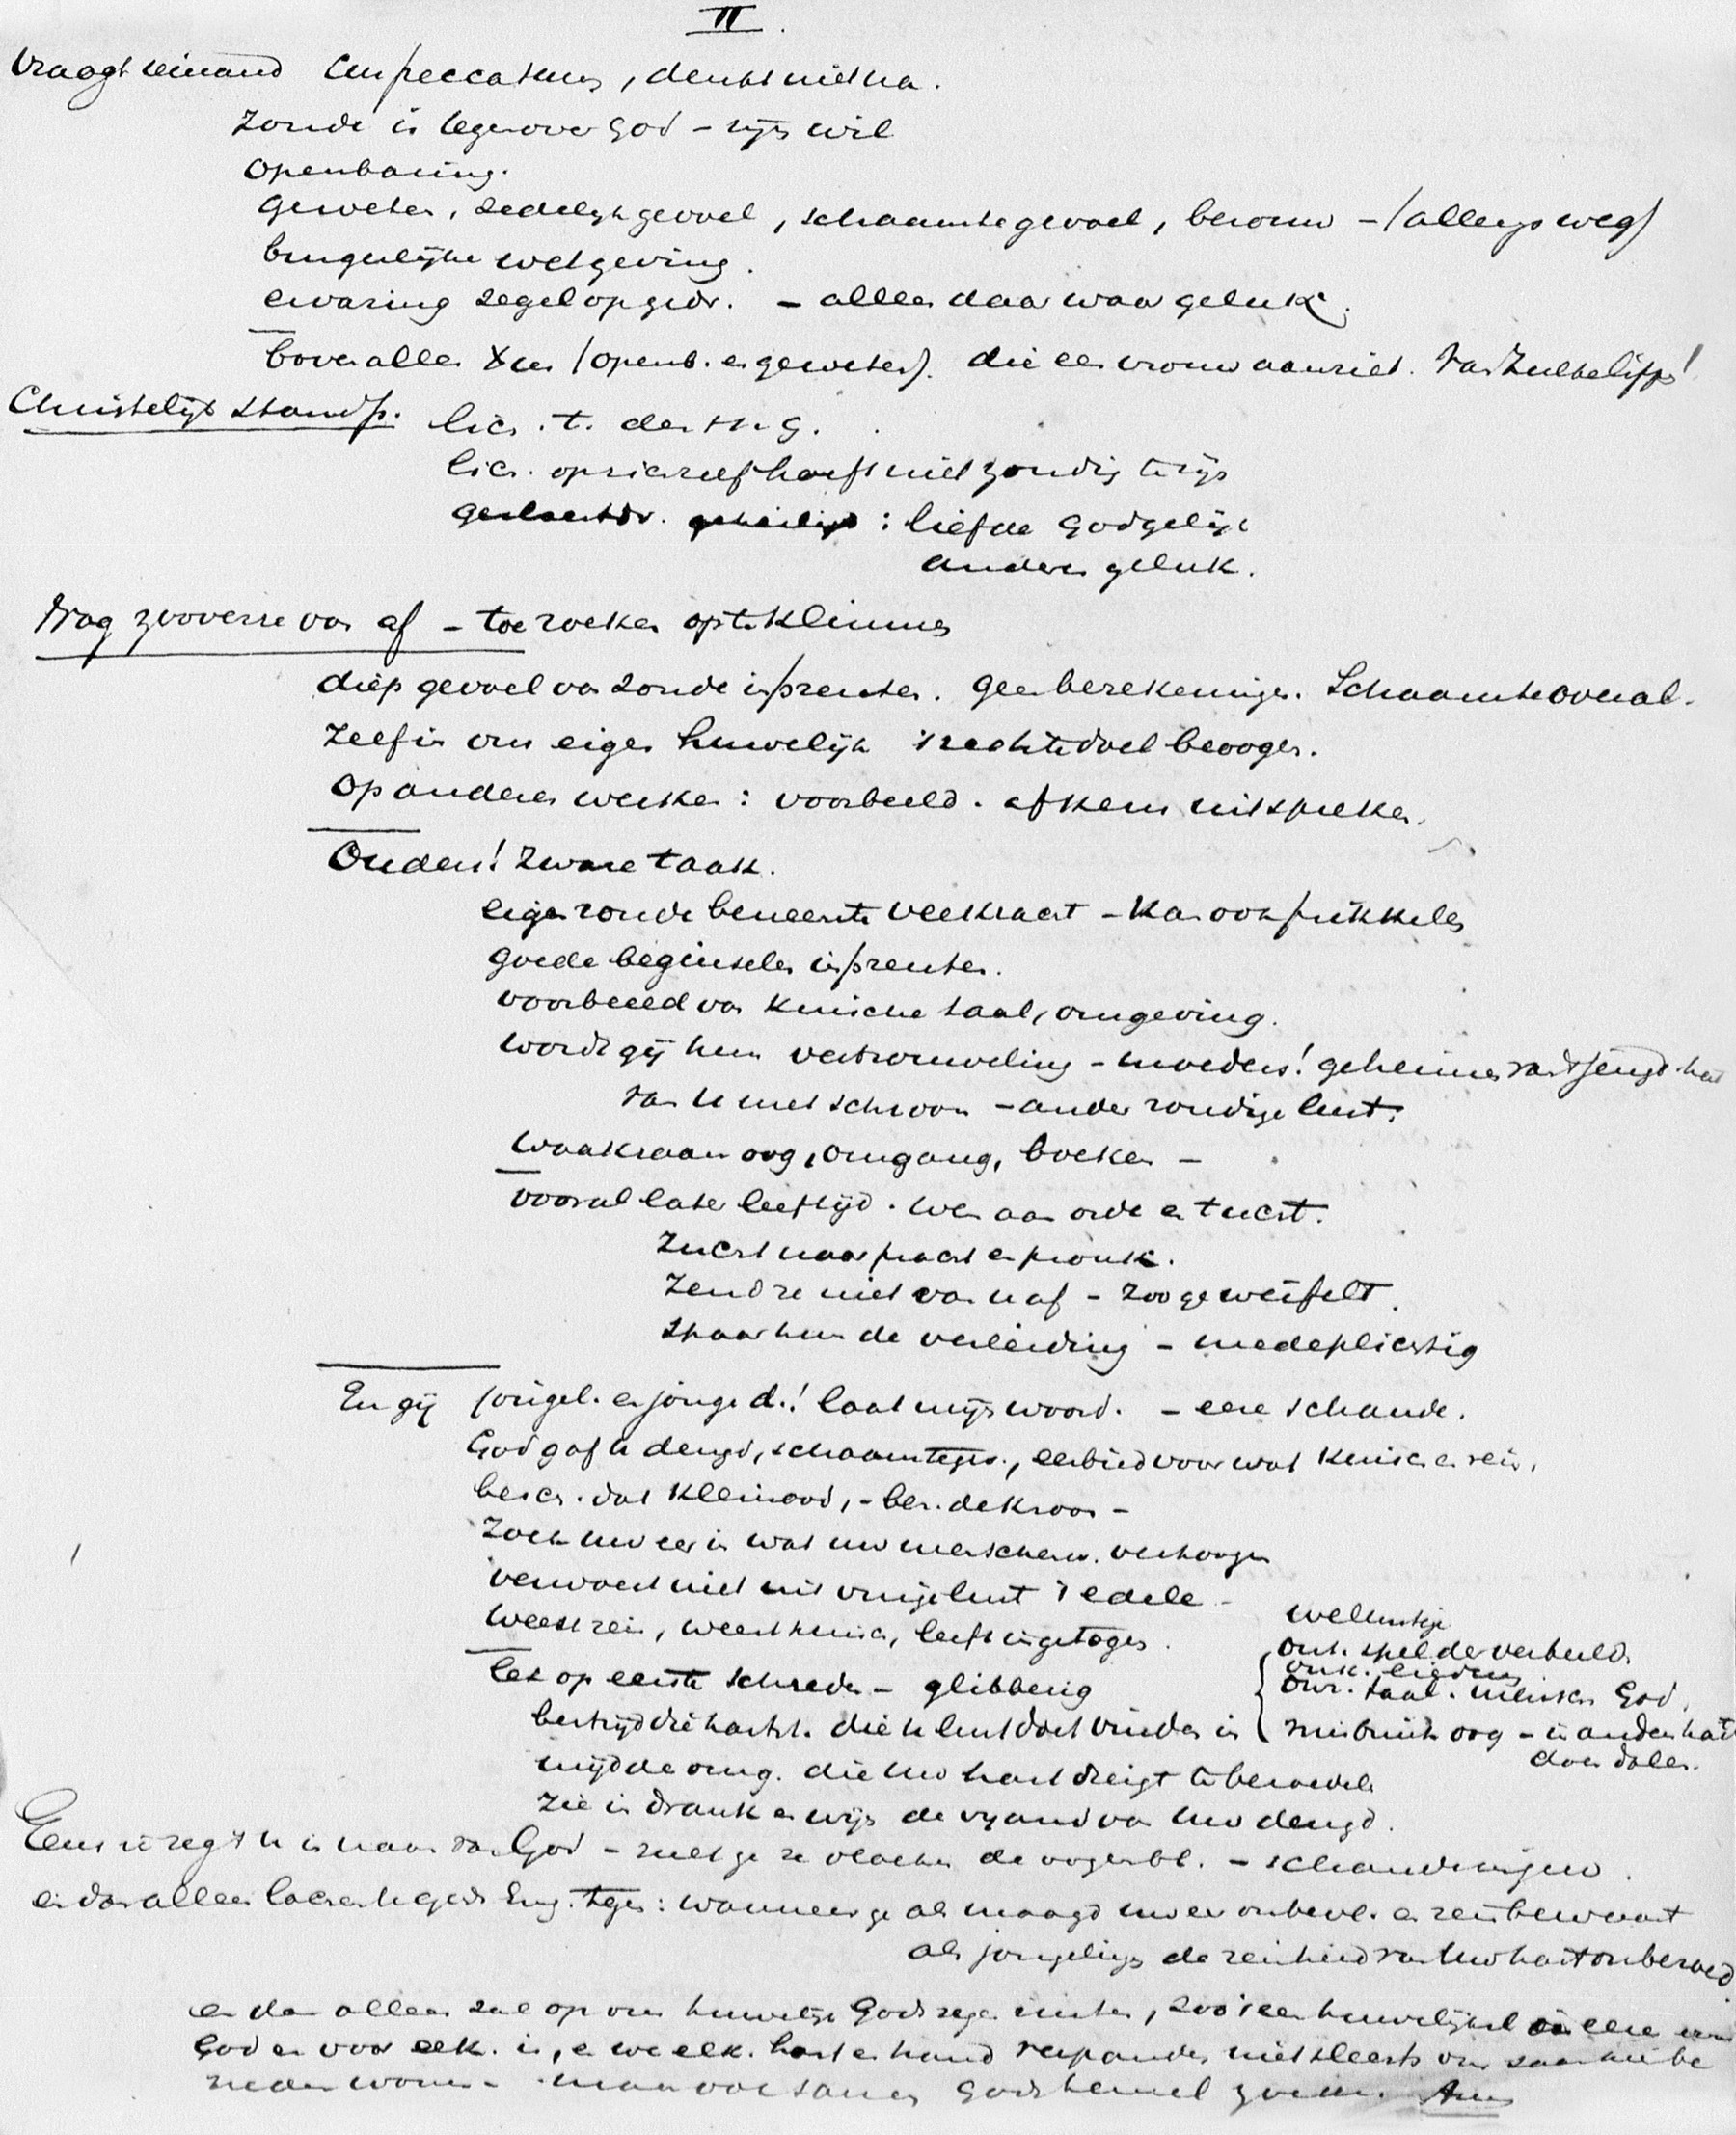 II.
Vraagt iemand Cur peccatum, denkt niet na.
Zonde is tegenover God - zijn wil
openbaring.
Geweten, zedelijk gevoel, schaamtegevoel, berouw - (alleys weg)
burgerlijke wetgeving.
ervaring zegel op gedr. - alleen daar waar geluk.
boven allen Xus (openb. en geweten). die een vrouw aanziet. van zulke
Christelijk standp. lich. t. des H. G.
lich. op zichzelf hoeft niet zondig te zijn
geslachtsdr. geheiligd : liefde God gelijk
anders geluk.
Nog zooverre van af - toe zoeken op te klimmen
diep gevoel van zonde inprenten. geen berekeningen. Schaamte overal.
Zelf in ons eigen huwelijk 't rechte doel beoogen.
Op anderen werken : voorbeeld. afkeer uitspreken.
Ouders! Zware taak.
eigen zonde beneemt veel kracht - kan ook prikkelen
goede beginselen inprenten.
voorbeeld van kuische taal, omgeving.
wordt gij hun vertrouweling - moeders! geheimen van 't jeugd. hart
van U niet schroom - ander zondige lust.
Waakzaam oog, omgang, boeken -
Vooral later leeftijd. wen aan orde en tucht.
Zucht naar pracht en pronk.
Zend ze niet van U af - zoo ge weifelt.
Spaar hun de verleiding - medeplichtig
En gij jongel. en jonge d.! laat mijn woord. - eene schande.
God gaf U deugd, schaamtegev., eerbied voor wat kuisch en rein,
besch. dat kleinood, - bew. de kroon -
Zoek uw eer in wat uw menschenw. verhoogen
verwoest niet uit onreine lust 't edele -
Weest rein, weest kuisch, leeft ingetogen.
let op eerste schreden - glibberig
bestrijd die hartst. die U lust doet vinden in {
wellustige
ont. spel der verbeeld.
onk. liederen
onr. taal. mensch en God.
misbruik oog - in ander hart
doen dalen.
mijd de omg. die uw hart dreigt te berooven
Zie in drank en wijn de vyand van uw deugd.
Eens rijst U in naam van God - zult ge ze vloeken de oogenbl. - schande
en dan alleen lachen U Gods Eng. tegen : wanneer ge als maagd uw eer onbevl. en rein bewaart
als jongeling de reinheid van uw hart onberoerd.
en dan alleen zal op ons huwelijk Gods zegen rusten, zoo 't een huwelijk is eene van
God en voor elk. is, en we elk. hart en hand verpanden niet slechts om saam hier be
neden wonen - maar ook samen Gods hemel zoeken. Amen